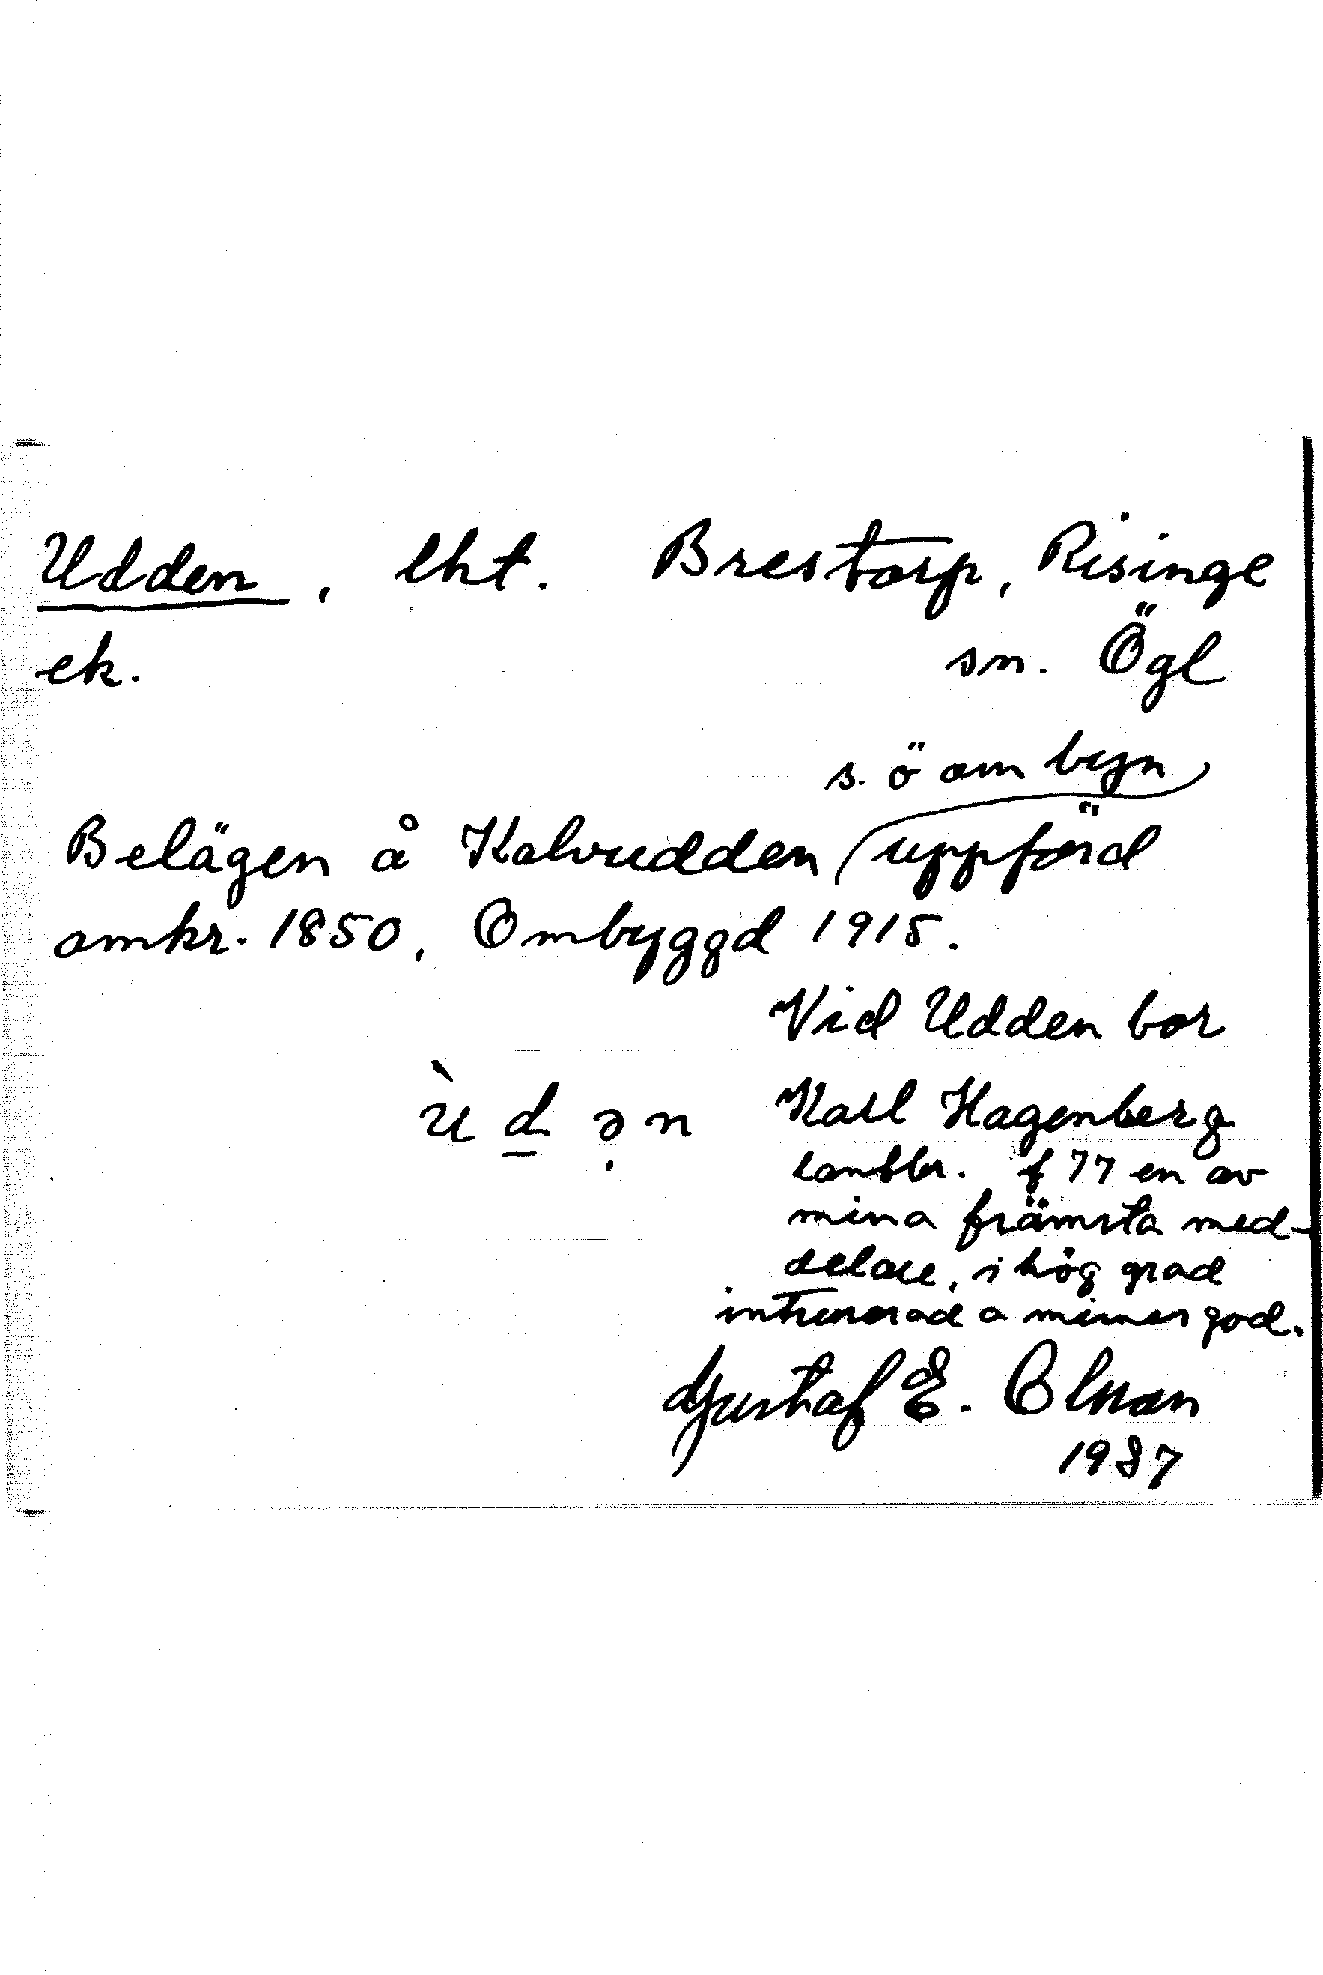 Udden, lht. Brestorp, Risinge
ek. sn. Ögl
s. ö om byn
Belägen å Kalvudden uppförd
omkr. 1850. Ombyggd 1915.
Vid Udden bor
ù d ə n Karl Hagenberg
lantbr. f 77 en av
mina främsta med-
delare, i hög grad
intresserad o minnesgod.
Gustaf E. Olsson
1937